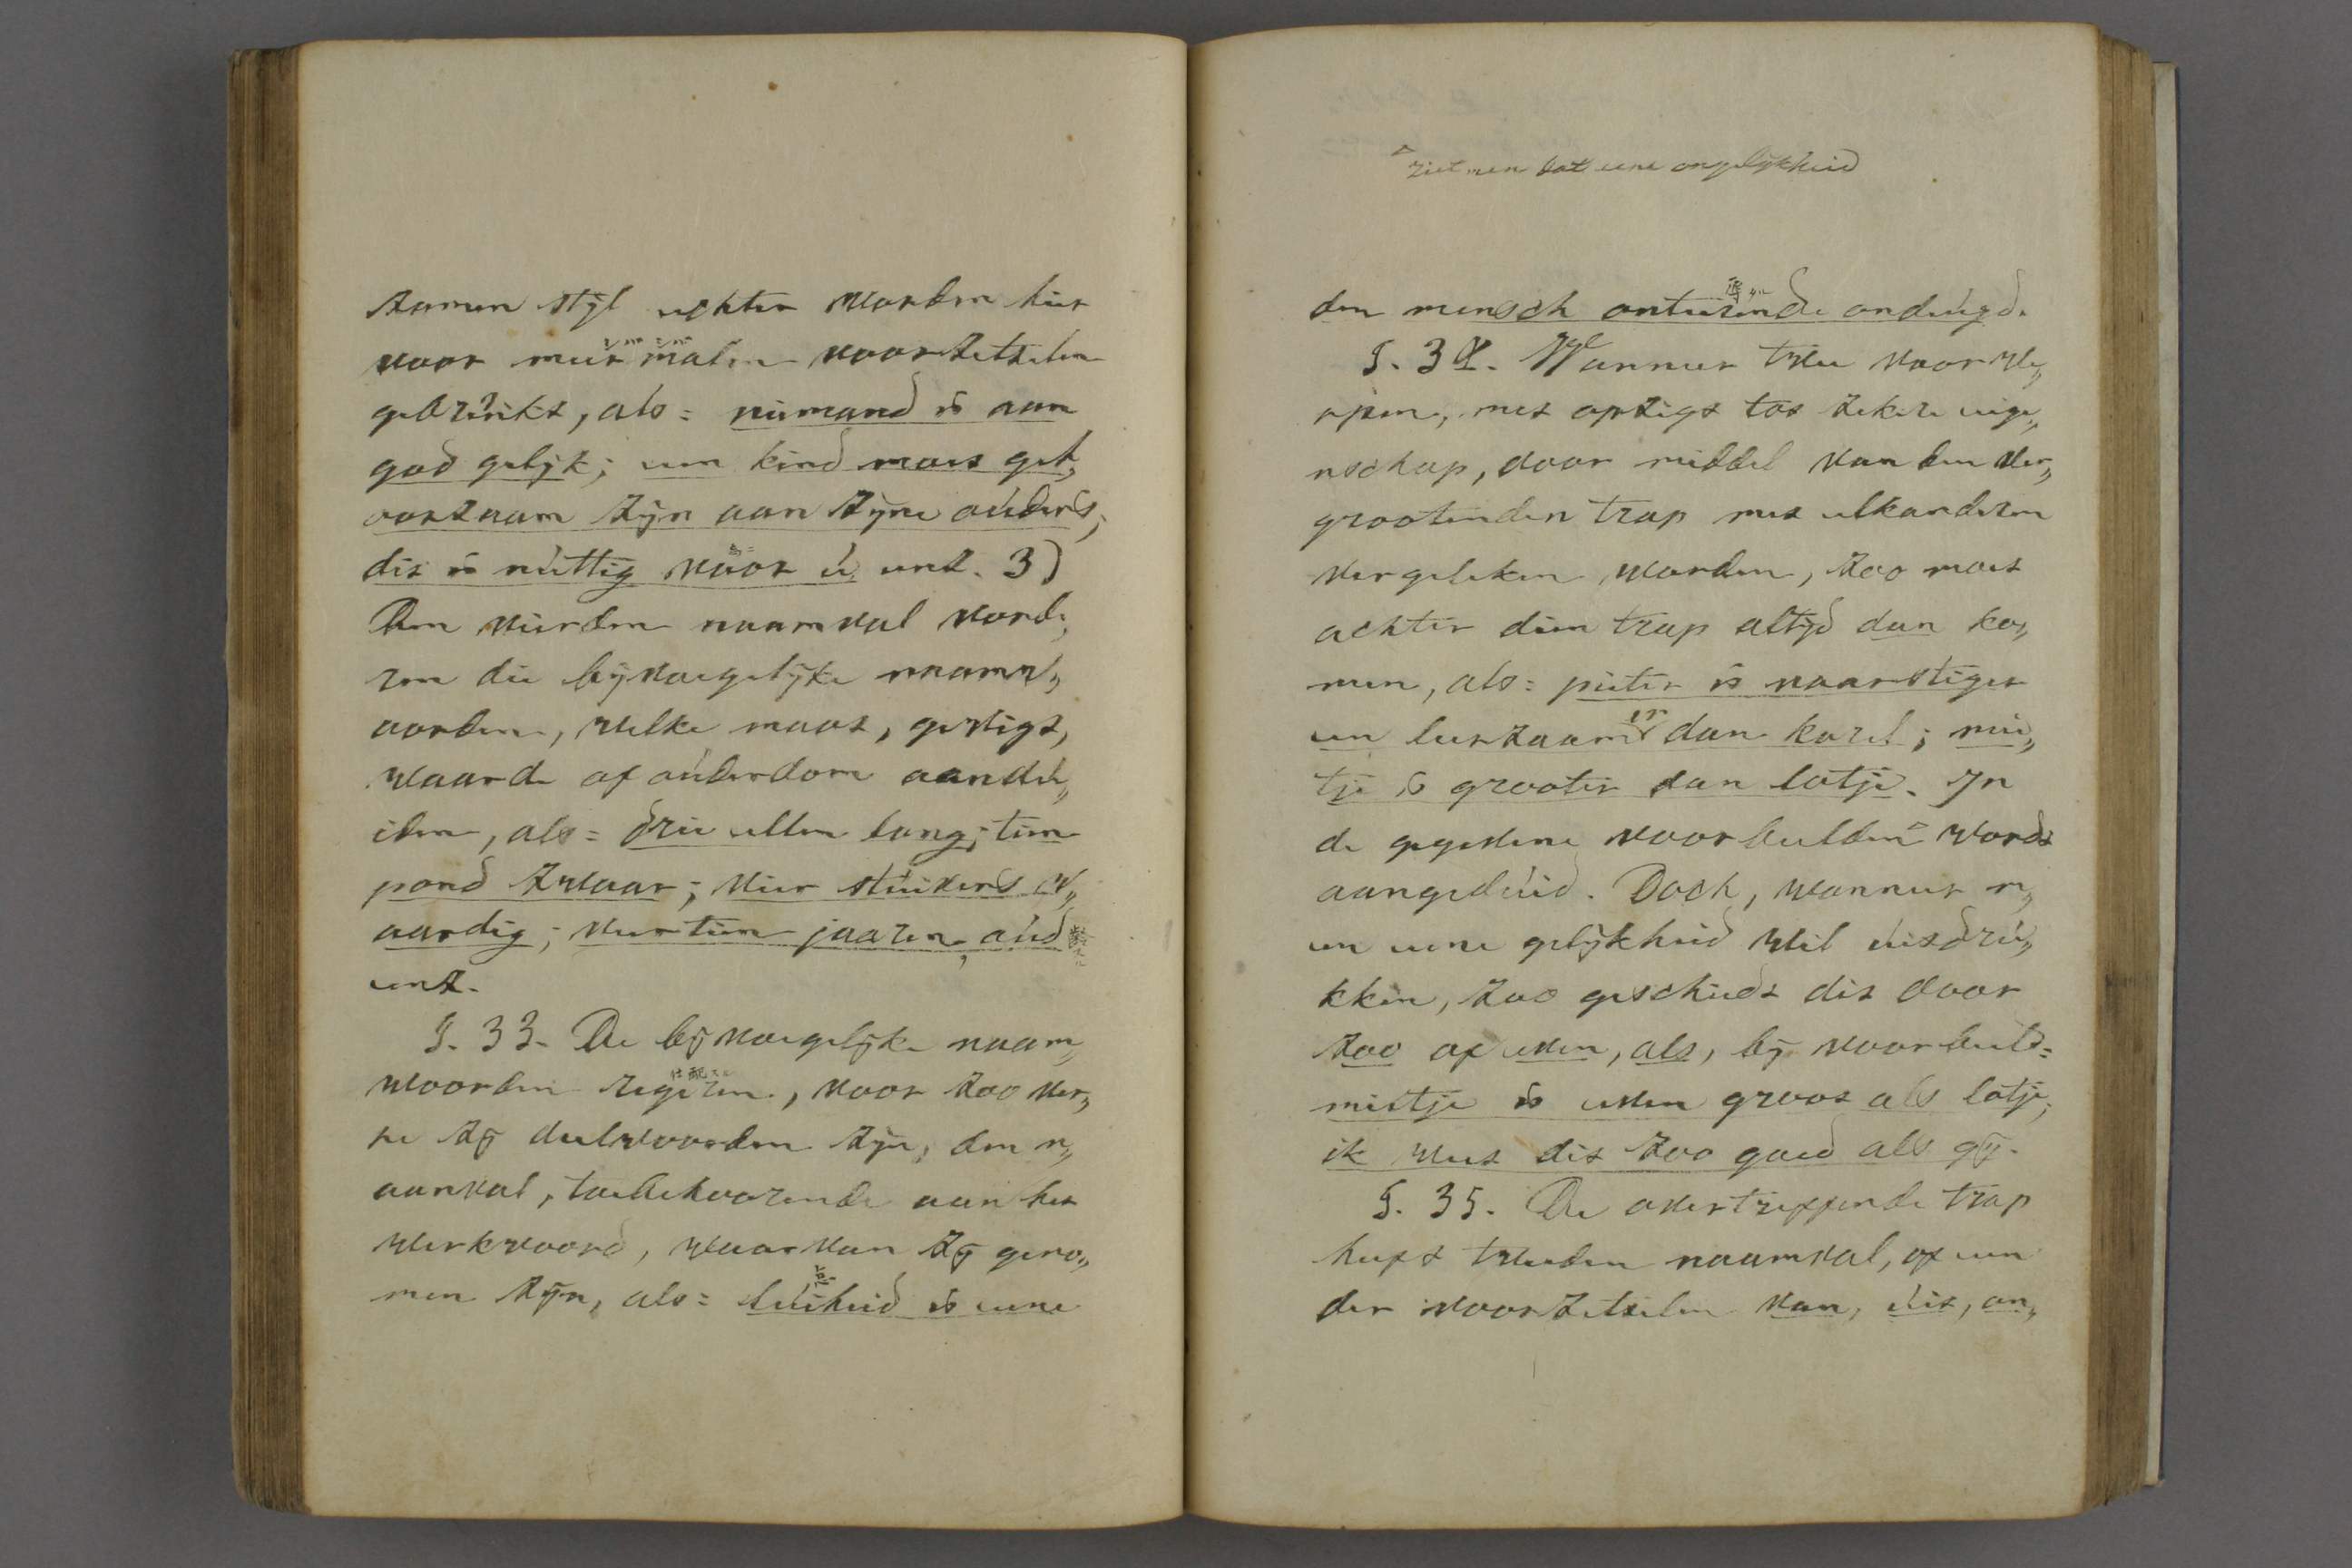 zamen stijl echter worden hier
voor meer malen voorzetselen
gebruikt, als: niemand is aan
god gelijk; een kind moet geh„
oorzaam zijn aan zijne ouders;
dit is nuttig voor u, enz. 3)
Den vierden naamval vorde„
ren die bijvoegelijke naamw„
oorden, welke maat, gewigt,
waarde of ouderdom aandu„
iden, als: drie ellen lang; tien
pond zwaar; vier stuivers w„
aardig; veertien jaaren oud
enz.
§. 33. De bijvoegelijke naam„
woorden regeren, voor zoo ver„
re zij deelwoorden zijn, den n„
aamval, toebehoorende aan het
werkwoord, waarvan zij geno„
men zijn, als: luiheid is eene
ziet men dat eene ongelijkheid
den mensch onteerende ondeugd.
支配
§. 34. Wanneer twee voorwe„
rpen, met opzigt tot zekere eige„
nschap, door middel van den ver„
grootenden trap met elkanderen
vergeleken worden, zoo moet
achter dien trap altijd dan ko„
men, als: pieter is naarstiger
en leerzaamer dan karel; mie„
tje is grooter dan lotje. In
de gegevene voorbeelden wordt
aangeduid. Doch, wanneer m„
en eene gelijkheid wil uitdru„
kken, zoo geschiedt dit door
zoo of even, als, bij voorbeeld:
mietje is even groot als lotje;
ik weet dit zoo goed als gij.
§. 35. De overtreffende trap
heeft tweeden naamval, of een
der voorzetselen van, uit, on„